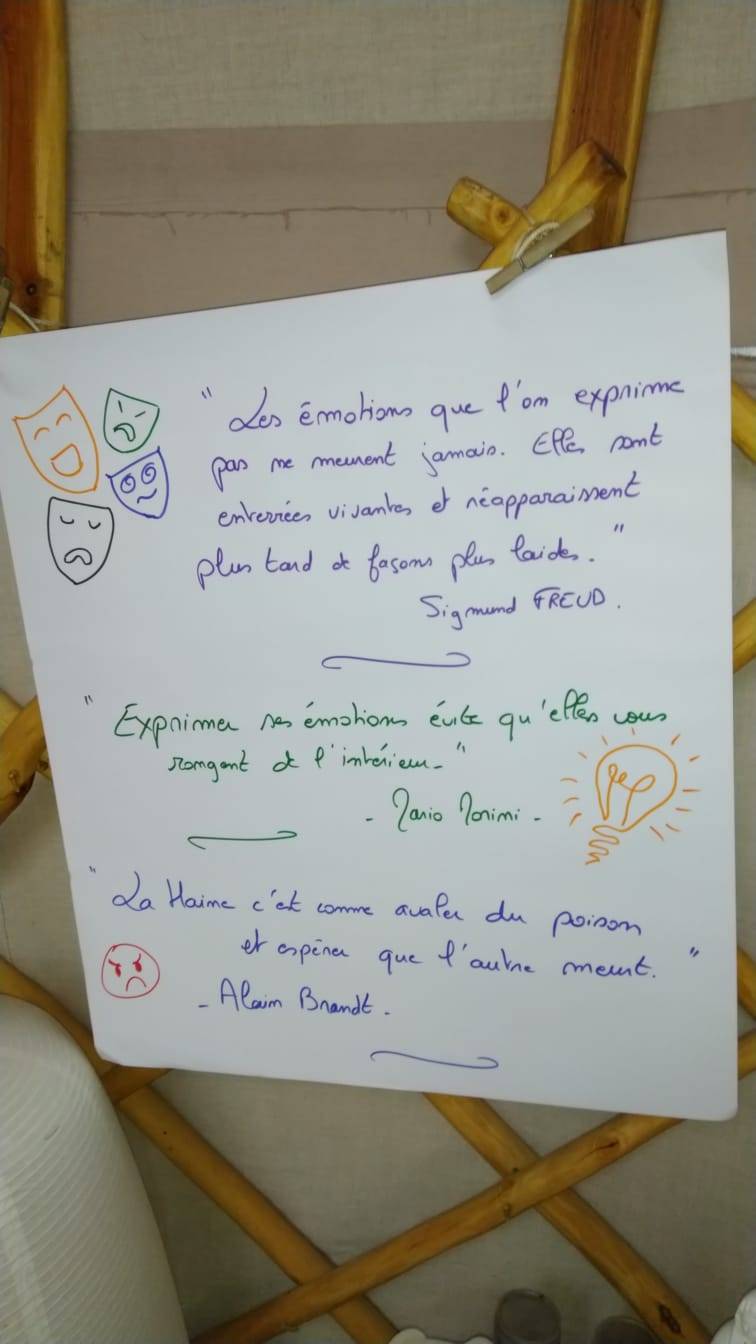 " Les émotions que l'on exprime
pas ne meurent jamais. Elles sont
enterrées vivantes et réapparaissent
plus tard de façons plus laides. "
Sigmund FREUD.
" Exprimer ses émotions évite qu'elles vous
rongent de l'intérieur. "
- Mario Morimi -
" La Haine c'est comme avaler du poison
et espérer que l'autre meurt. "
- Alain Brandt.